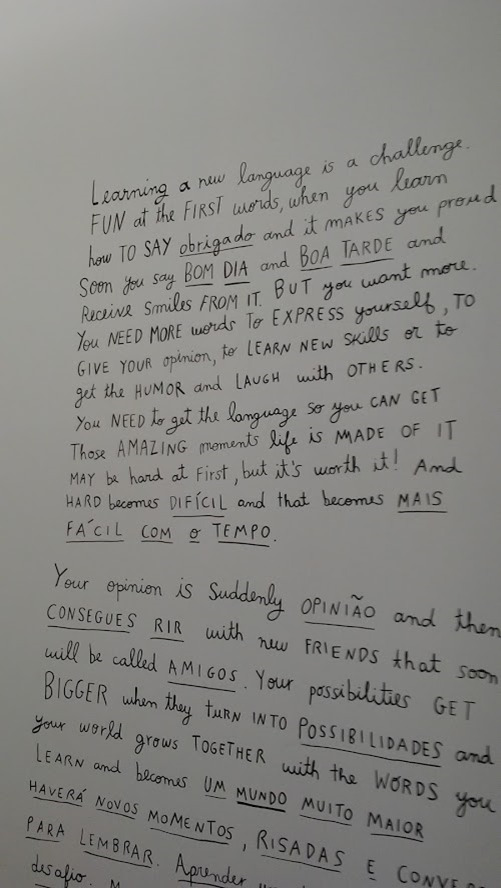 Learning a new language is a challenge.
FUN at the FIRST words, when you learn
how TO SAY obrigado and it MAKES you proud
Soon you say BOM DIA and BOA TARDE and
Receive smiles FROM IT. BUT you want more.
You NEED MORE words To EXPRESS yourself, TO
GIVE YOUR opinion, to LEARN NEW Skills or to
get the HUMOR and LAUGH with OTHERS.
You NEED to get the language so you CAN GET
Those AMAZING moments life is MADE OF IT
MAY be hard at First, but it's worth it! And
HARD becomes DIFÍCIL and that becomes MAIS
FÁCIL COM O TEMPO.
Your opinion is Suddenly OPINIÃO and then
CONSEGUES RIR with new FRIENDS that soon
will be called AMIGOS. Your possibilities GET
BIGGER when they TURN INTO POSSIBILIDADES and
your world grows TOGETHER with the WORDS you
LEARN and becomes UM MUNDO MUITO MAIOR
HAVERÁ NOVOS MOMENTOS, RISADAS E
PARA LEMBRAR. Aprender
desafio.